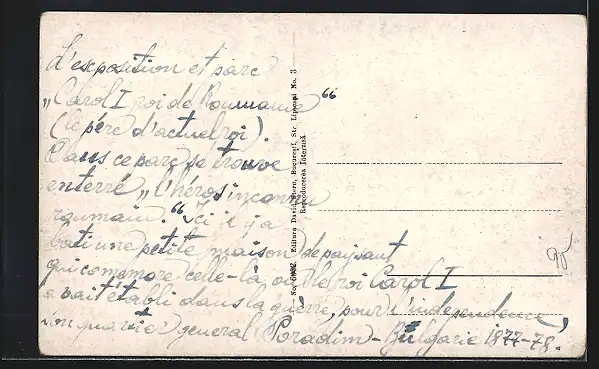 L'exposition et parc
„Carol I roi de Roumanie“
(le père d'actuel roi).
Dans ce parc se trouve
enterré „l'héros inconnu
roumain.“ Ici il y a
bati une petite maison de paysant
qui comemore celle-là, ou le roi Carol I
avait établi dans la guerre, pour l'independence,
son quartier general Poradim - Bulgarie 1877-78.
Editura David, Bucureşti, Str. Lipscani No. 3
Reproducerea Interzisă
90